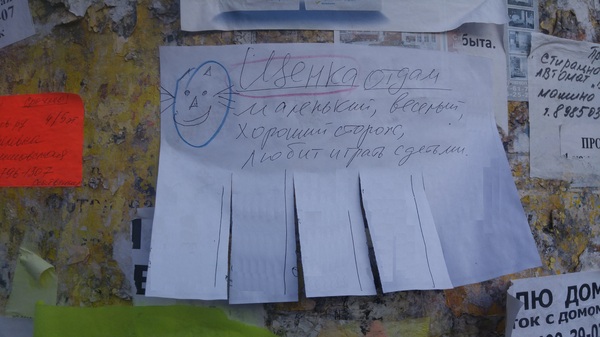 Щенка отдам
маленький, веселый,
хороший сторож,
любит играть с детьми.
быта.
стиральн
автомат
машино
т. 898503
ПРО
ЛЮ ДОМ
ток с домом